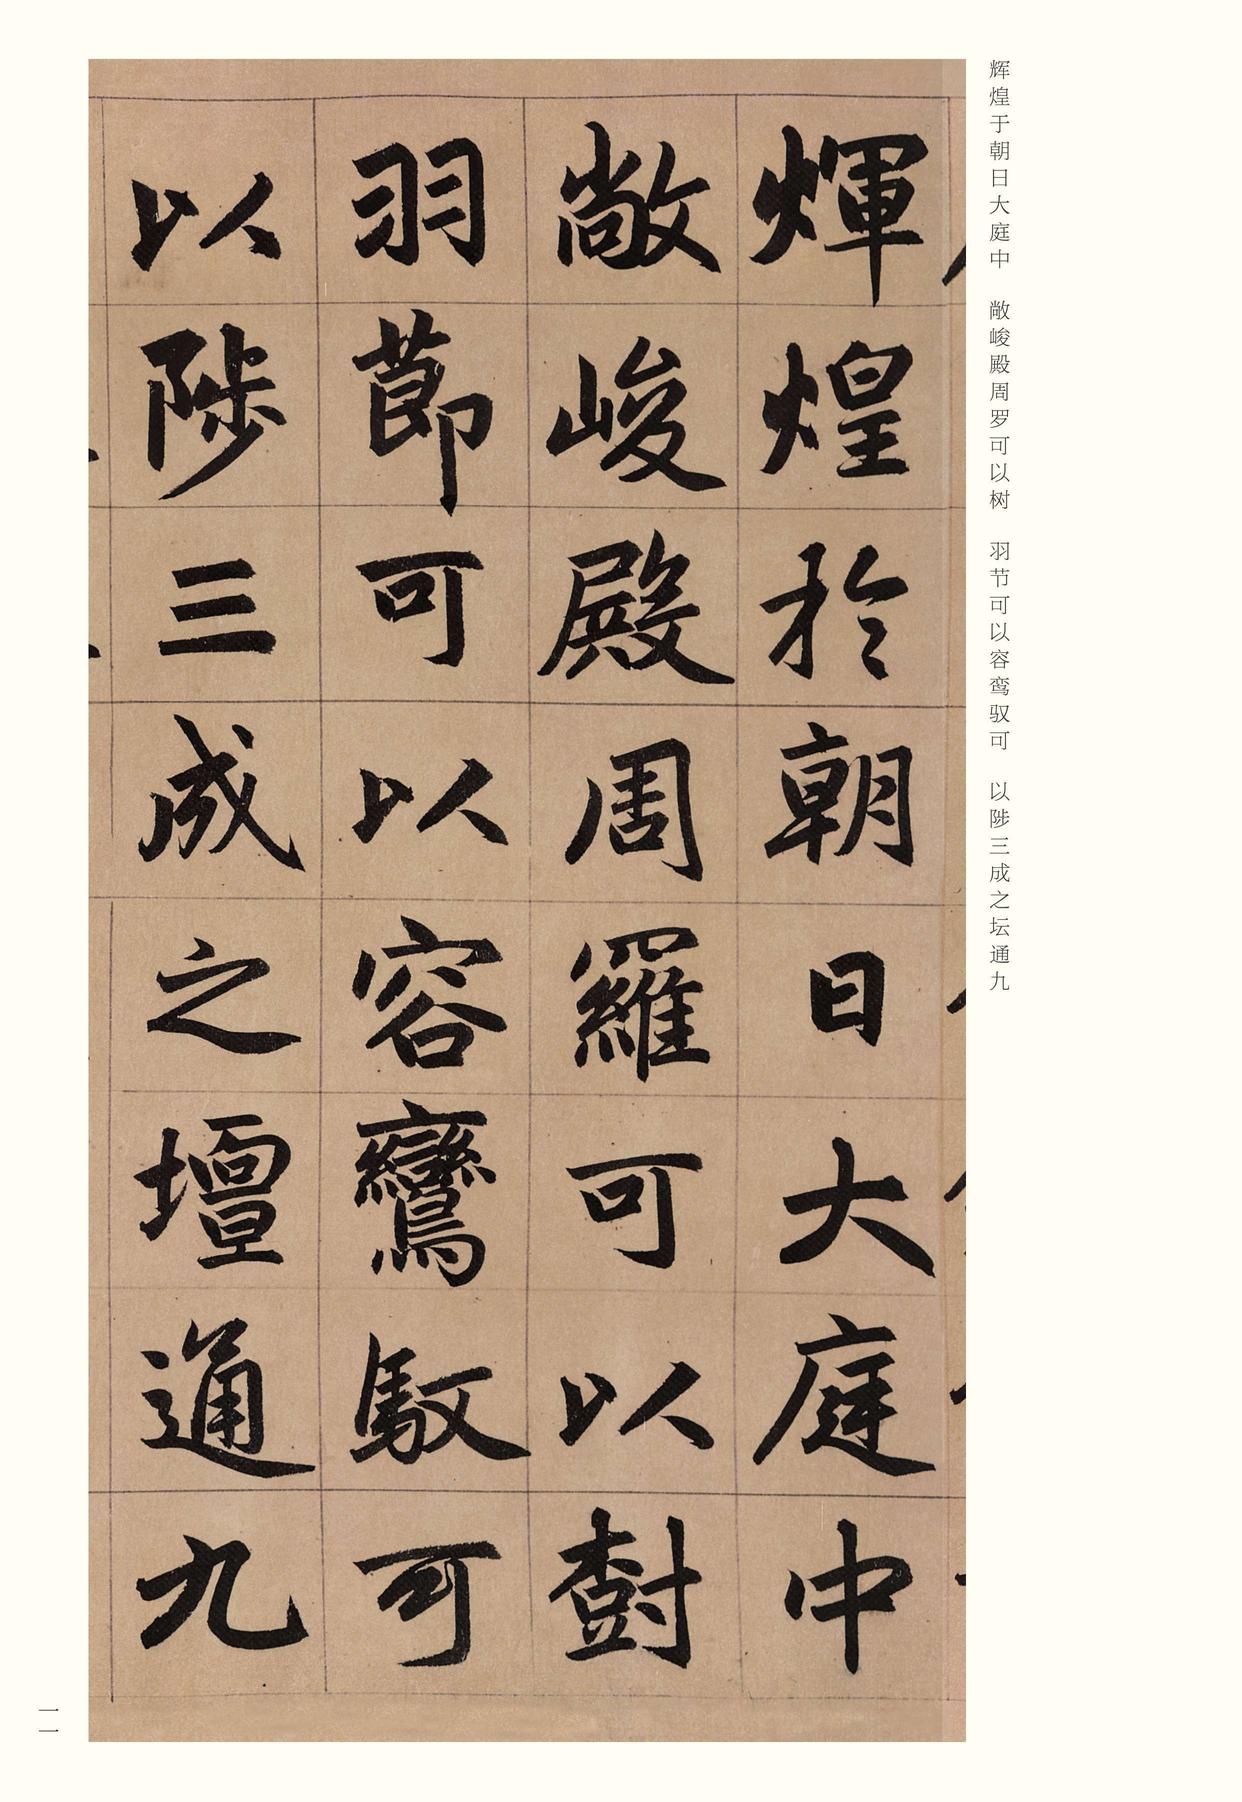 辉煌于朝日大庭中　敞峻殿周罗可以树　羽节可以容鸾驭可　以陟三成之坛通九
煇煌於朝日大庭中
敞峻殿周羅可以樹
羽節可以容鸞馭可
以陟三成之壇通九
一一